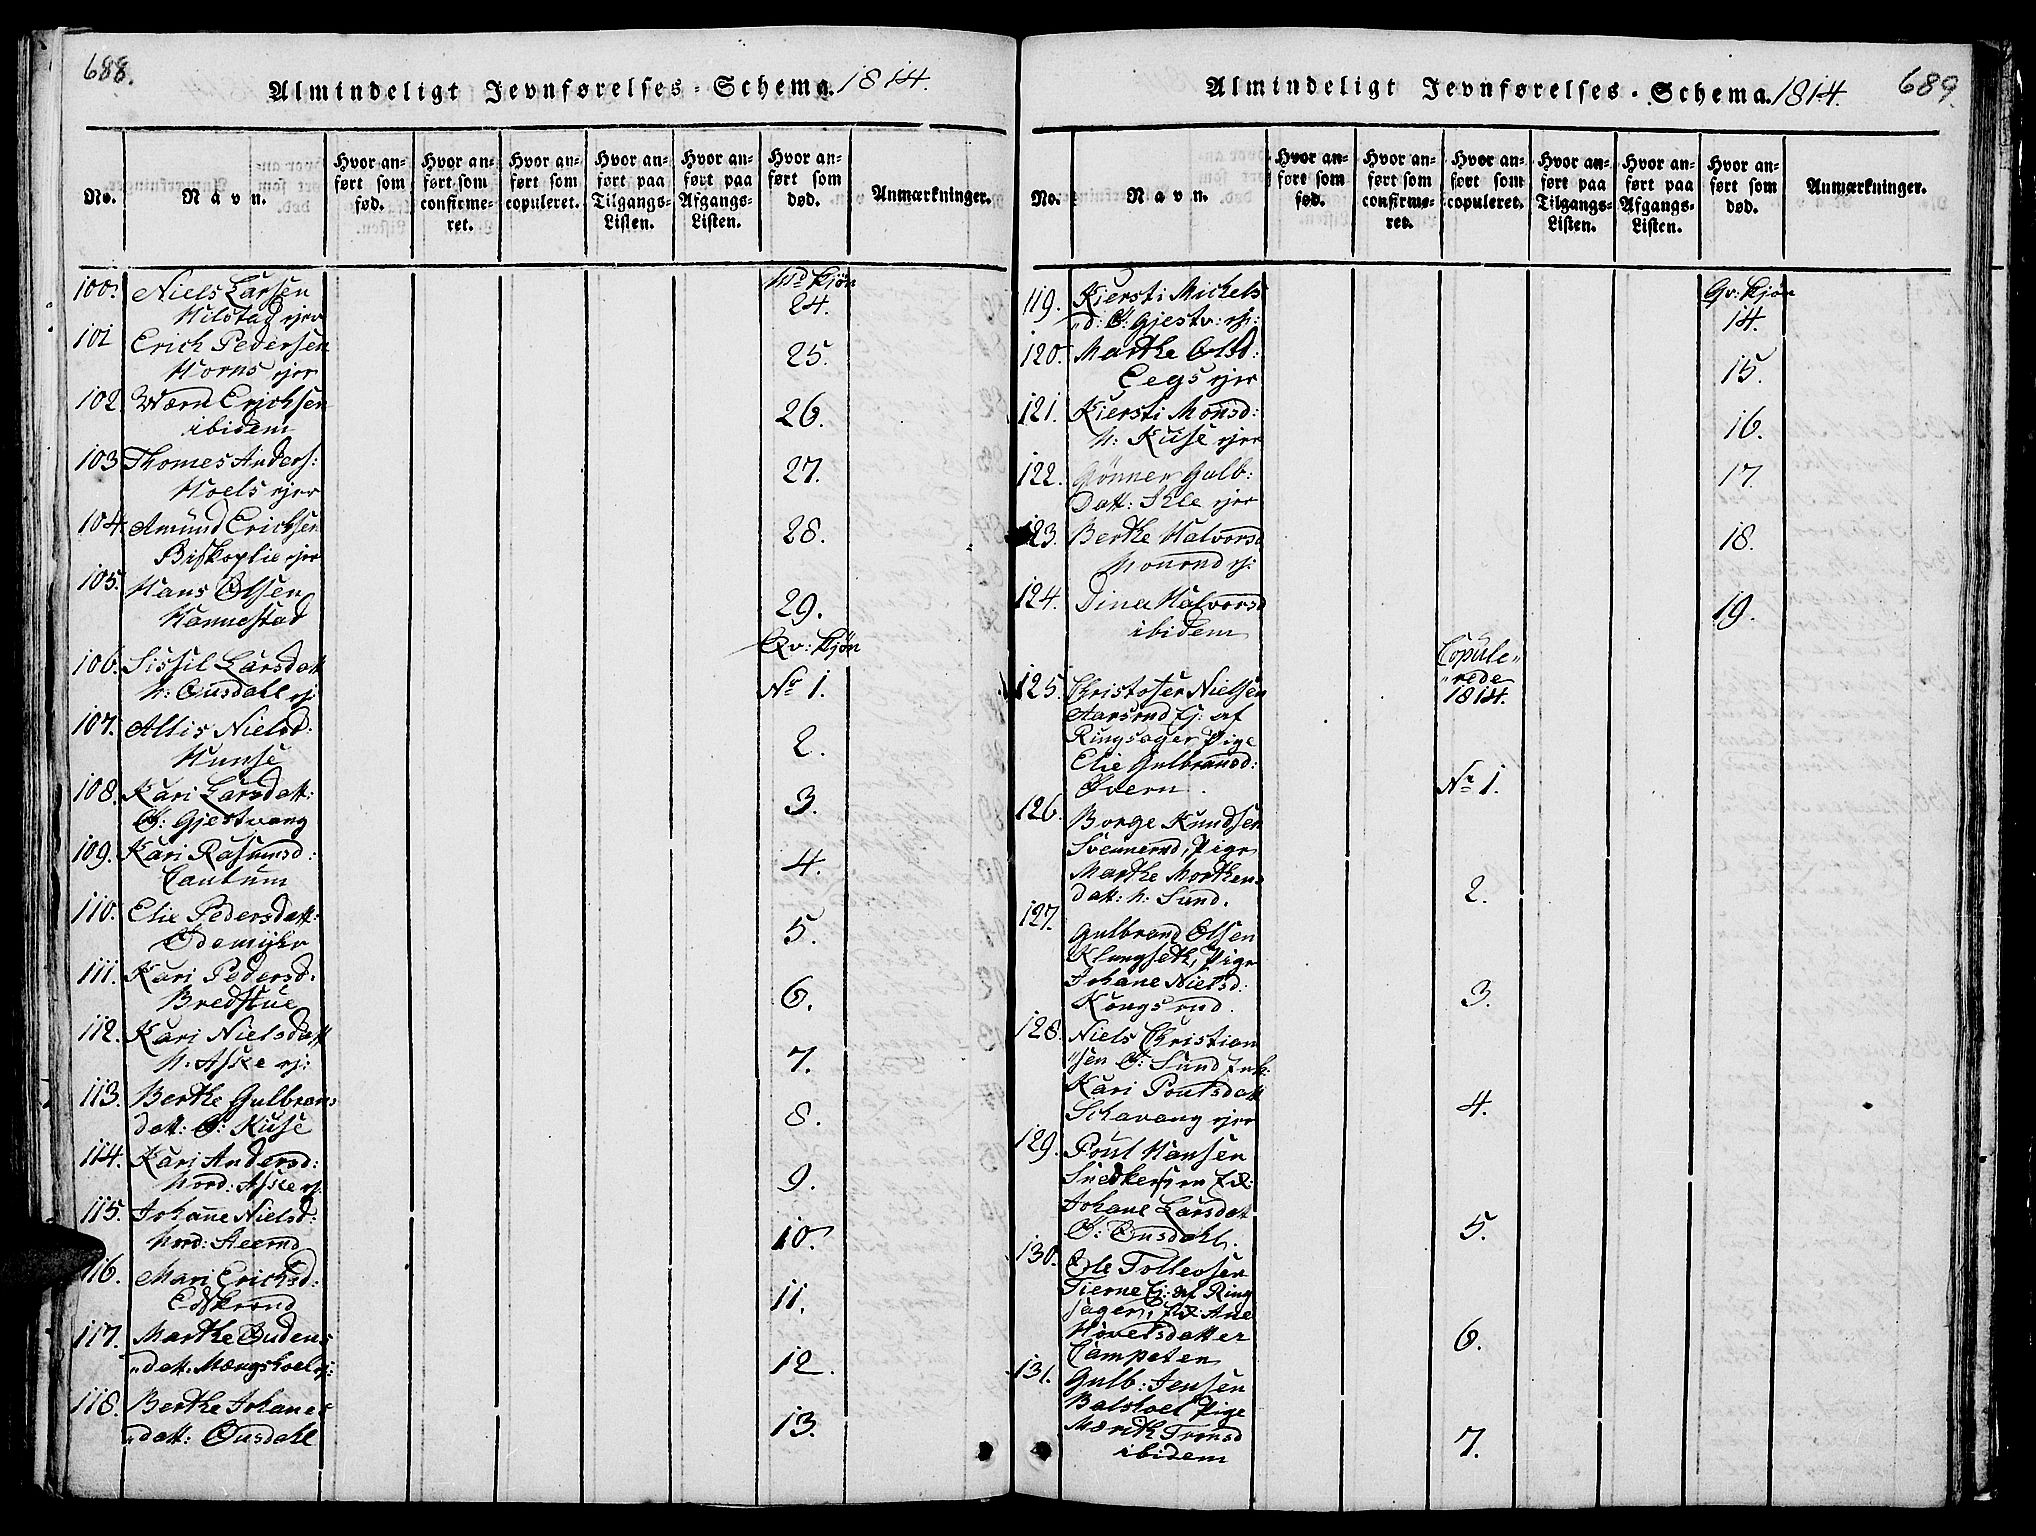 688.
Almindeligt Jevnførelses-Schema. 1814.
No.
Navn.
Hvor anført som fød.
Hvor anført som confirmeret.
Hvor anført som copuleret.
Hvor anført paa Tilgangs-Listen.
Hvor anført paa Afgangs-Listen.
Hvor anført som død.
Anmærkninger.
Md: Kjøn
100. Niels Larsen 24.
Hilstad ejer
101 Erich Pedersen
Horns ejer 25.
102. Erichsen
ibidem 26.
103 Thomes Anders: 27.
Hoels ejer
104. Amünd Erichsen 28.
Biskoplie ejer
105. Hans Olsen
Hannestad 29.
Qv: Kjön
106. Sissil Larsdatt
N: Ousdahl ej: No 1.
107. Allis Nielsd:
Hunse 2.
108. Kari Larsdatt: 3.
O: Gjestvang
109. Kari Rasmusd: 4.
Cautum
110. Elie Pedersdatt:
Ødemyhr 5.
111. Kari Pedersd:
Bredstue 6.
112. Kari Nielsdatt
N. Aske ej: 7.
113. Berthe Gulbrans
datt: O: Kuse 8.
114. Kari Andersd:
Nord: Aske ej: 9.
115. Johanne Nielsd:
Nord: Steend 10.
116. Mari Erichsd:
11.
117. Marthe Oudens
datt. Mængshoel ej: 12.
118. Berthe Johanes
datt: Ousdahl 13.
Almindeligt Jevnførelses-Schema. 1814.
689.
No.
Navn.
Hvor anført som fød.
Hvor anført som confirmeret.
Hvor anført som copuleret.
Hvor anført paa Tilgangs-Listen.
Hvor anført paa Afgangs-Listen.
Hvor anført som død.
Anmærkninger.
Qv: Kjön
119. Kiersti Michels
d: O: Gjestv: ej: 14.
120. Marthe Olsd:
Eegs ejer 15.
121. Kiersti Monsd:
N: Kuse ejer 16.
122. Gönner Gulb: 17.
Datt: Skle ejer
123. Berthe Halvorsd 18.
Honrud ej:
124. Dina Halvorsd 19.
ibidem
Copule-
rede
1814.
125. Christofer Nielsen
Aarsrud Ej: af
Ringsager, Pige
Elie Gulbrandsd:
Overn. No 1.
126. Borge Knudsen
Svennerud, Pige
Marthe Morthens
datt: N: Sund. 2.
127. Gulbrand Olsen
Klungseth, Pige
Johane Nielsd:
Kongsrud. 3.
128. Niels Christian
sen O: Sund Enk:
Kari Poulsdatt
Schavang ejer 4.
129. Poul Hansen
Johane Larsdatt
O: Ousdahl. 5.
130. Ole Tollevsen
Tierne Ej: af Ring
sager, Ane
Hovelsdatter 6.
Campeten
131. Gulb: Jensen
Balshoel Pige
Marith Tronsd 7.
ibidem